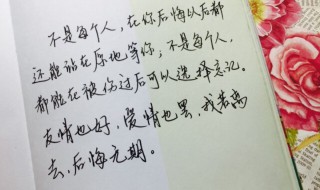 不是每个人，在你后悔以后都
还能站在原地等你；不是每个人，
都能在被伤过后可以选择忘记。
友情也好，爱情也罢，我若离
去，后悔无期。